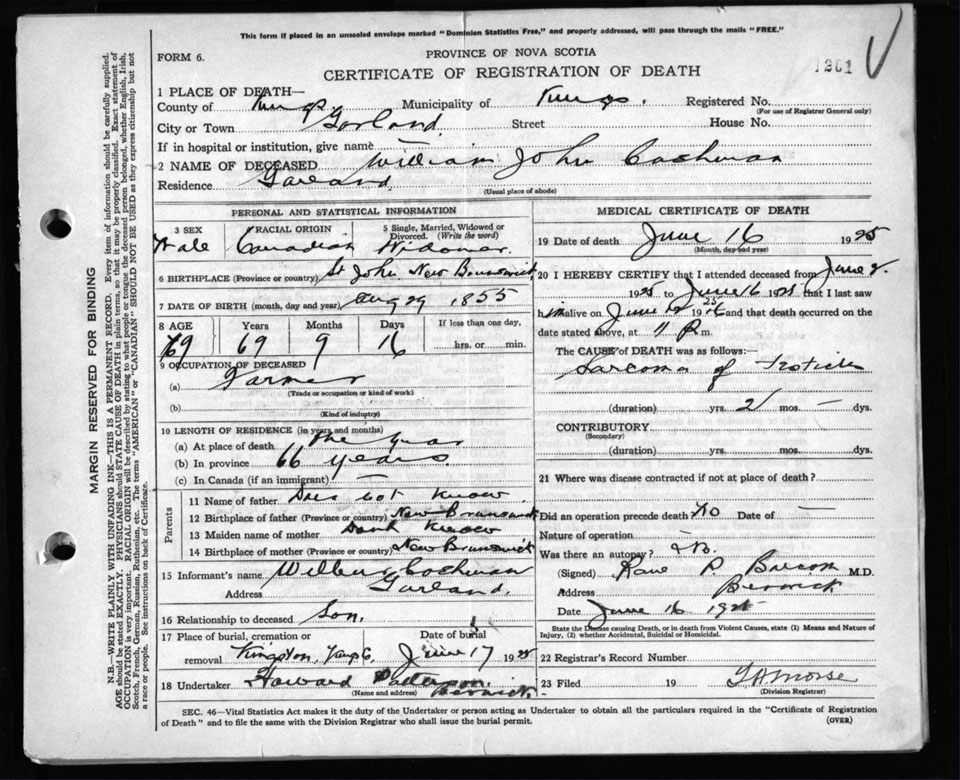 This form if placed in an unsealed envelope marked "Dominion Statistics Free," and properly addressed, will pass through the mails "FREE."
FORM 6.
PROVINCE OF NOVA SCOTIA
CERTIFICATE OF REGISTRATION OF DEATH
1201
1 PLACE OF DEATH—
County of Kings Municipality of Kings. Registered No.
(For use of Registrar General only)
City or Town Garland. Street House No.
If in hospital or institution, give name
2 NAME OF DECEASED William John Cochman
Residence Garland.
(Usual place of abode)
PERSONAL AND STATISTICAL INFORMATION
3 SEX RACIAL ORIGIN 5 Single, Married, Widowed or Divorced. (Write the word)
Male Canadian Widower.
6 BIRTHPLACE (Province or country) St John New Brunswick
7 DATE OF BIRTH (month, day and year) Aug 29 1855
8 AGE Years Months Days If less than one day,
69 69 9 16 hrs. or min.
9 OCCUPATION OF DECEASED
(a) Farmer
(Trade or occupation or kind of work)
(b)
(Kind of industry)
10 LENGTH OF RESIDENCE (in years and months)
(a) At place of death
(b) In province 66 years.
(c) In Canada (if an immigrant) —
Parents
11 Name of father Does not know.
12 Birthplace of father (Province or country) New Brunswick
13 Maiden name of mother Don't know
14 Birthplace of mother (Province or country) New Brunswick
15 Informant's name Wilbur Cochman
Address Garland.
16 Relationship to deceased Son.
17 Place of burial, cremation or removal Date of burial
Kingston, Kings C. June 17 1925
18 Undertaker Howard
(Name and address) Berwick.
MEDICAL CERTIFICATE OF DEATH
19 Date of death June 16 1925
(Month, day and year)
20 I HEREBY CERTIFY that I attended deceased from June 2.
1925 to June 16 1925 that I last saw
him alive on June 1925 and that death occurred on the
date stated above, at 11 P m.
The CAUSE of DEATH was as follows:—
Sarcoma of Testicle
(duration) yrs. 2 mos. — dys.
CONTRIBUTORY
(Secondary)
(duration) yrs. mos. dys.
21 Where was disease contracted if not at place of death?
Did an operation precede death? No Date of —
Nature of operation —
Was there an autopsy? No.
(Signed) M.D.
Address Berwick
Date June 16 1925
State the Disease causing Death, or in death from Violent Causes, state (1) Means and Nature of Injury, (2) whether Accidental, Suicidal or Homicidal.
22 Registrar's Record Number
23 Filed 19 Morse
(Division Registrar)
SEC. 46—Vital Statistics Act makes it the duty of the Undertaker or person acting as Undertaker to obtain all the particulars required in the "Certificate of Registration
of Death" and to file the same with the Division Registrar who shall issue the burial permit.
(OVER)
MARGIN RESERVED FOR BINDING
N.B.—WRITE PLAINLY WITH UNFADING INK—THIS IS A PERMANENT RECORD. Every item of information should be carefully supplied.
AGE should be stated EXACTLY. PHYSICIANS should STATE CAUSE OF DEATH in plain terms, so that it may be properly classified. Exact statement of
OCCUPATION is very important. RACIAL ORIGIN will be described by stating to what people or tongue, the deceased person belonged, whether English, Irish,
Scotch, French, German, Russian, Ruthenian, etc. The terms "AMERICAN" or "CANADIAN" SHOULD NOT BE USED as they express citizenship but not
a race or people. See instructions on back of Certificate.